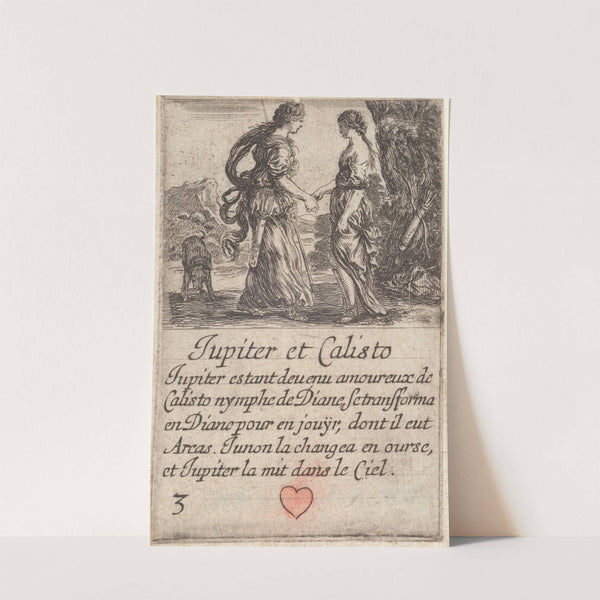 Iupiter et Calisto
Iupiter estant deuenu amoureux de
Calisto nymphe de Diane, Se transforma
en Diane pour en jouÿr, dont il eut
Arcas. Iunon la changea en ourse,
et Iupiter la mit dans le Ciel.
3